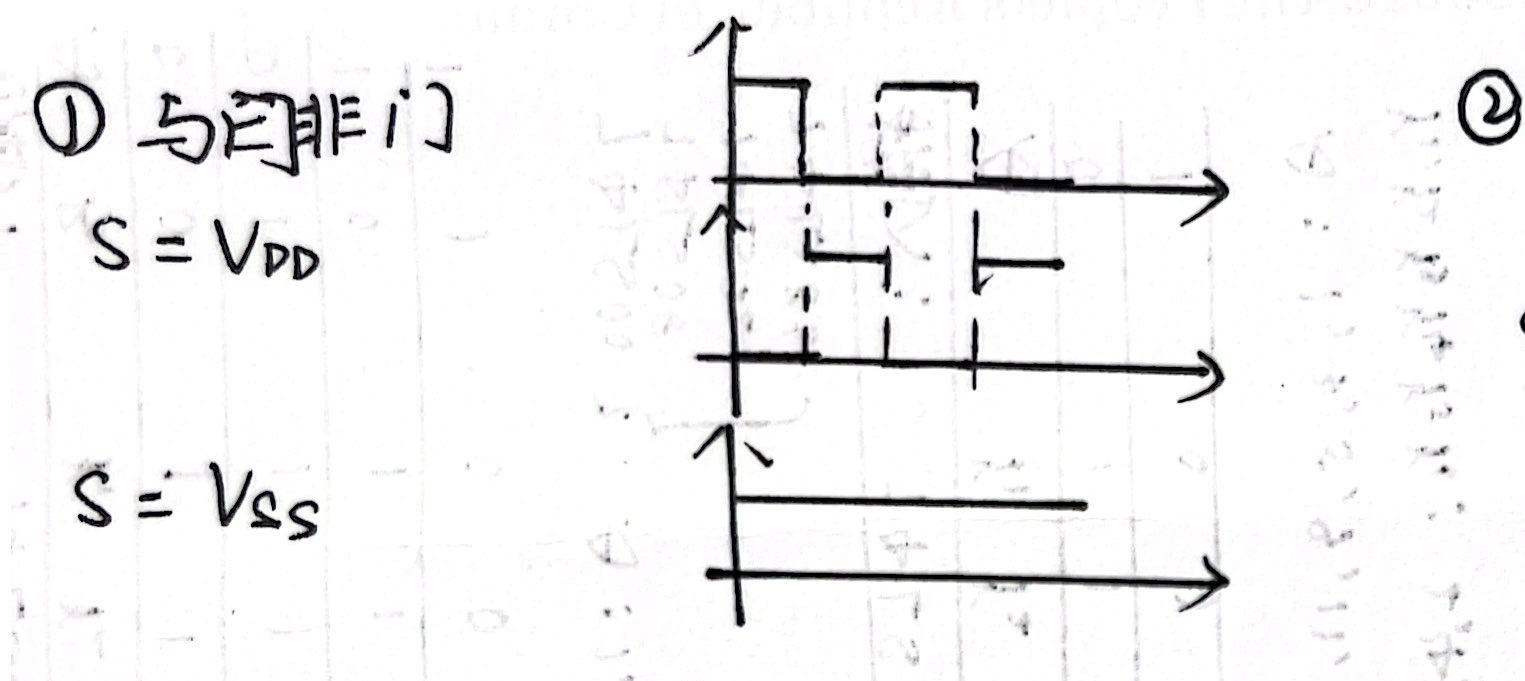 ① 与非门
S = VDD
S = VSS
②